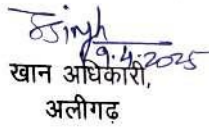 9.4.2025
खान अधिकारी,
अलीगढ़